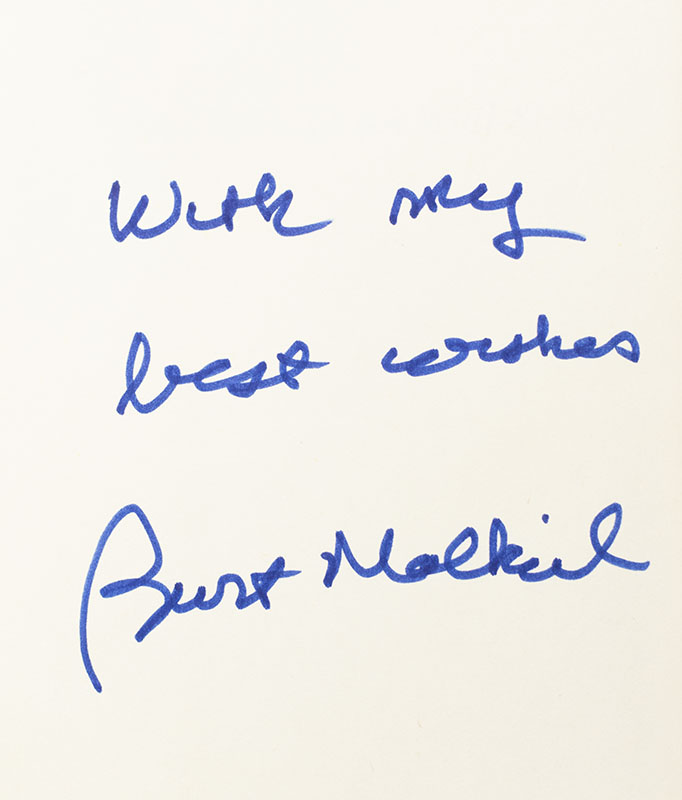 With my
best wishes
Burt Malkiel